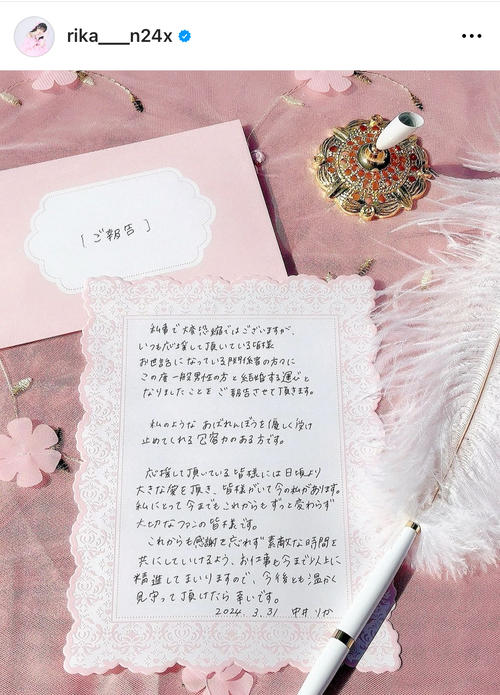 rika___n24x
[ご報告]
私事で大変恐縮ではございますが、
いつも応援して頂いている皆様
お世話になっている関係者の方々に
この度一般男性の方と結婚する運びと
なりましたことをご報告させて頂きます。
私のようなあばれんぼうを優しく受け
止めてくれる包容力のある方です。
応援して頂いている皆様には日頃より
大きな愛を頂き、皆様がいて今の私があります。
私にとって今までもこれからもずっと変わらず
大切なファンの皆様です。
これからも感謝を忘れず素敵な時間を
共にしていけるよう、お仕事も今まで以上に
精進してまいりますので、今後とも温かく
見守って頂けたら幸いです。
2024.3.31 中井りか